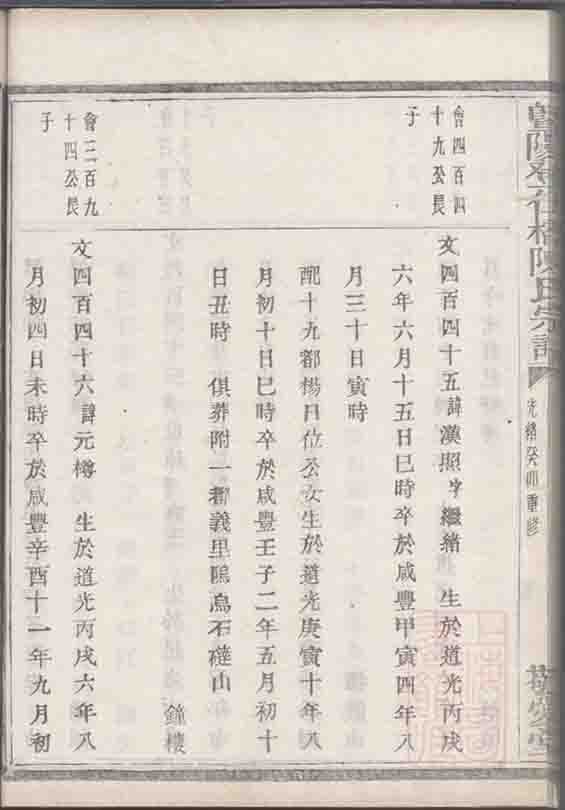 暨陽橋陳氏宗譜 光緒癸卯重修 堂
會四百四
十九公長
子
文四百四十五諱漢照字繼緒 生於道光丙戌
六年六月十五日巳時卒於咸豐甲寅四年八
月三十日寅時
配十九都楊日位公女生於道光庚寅十年八
月初十日巳時卒於咸豐壬子二年五月初十
日丑時 俱葬附一都義里隖烏石山
鐘樓
會三百九
十四公長
子
文四百四十六諱元樽 生於道光丙戌六年八
月初四日未時卒於咸豐辛酉十一年九月初